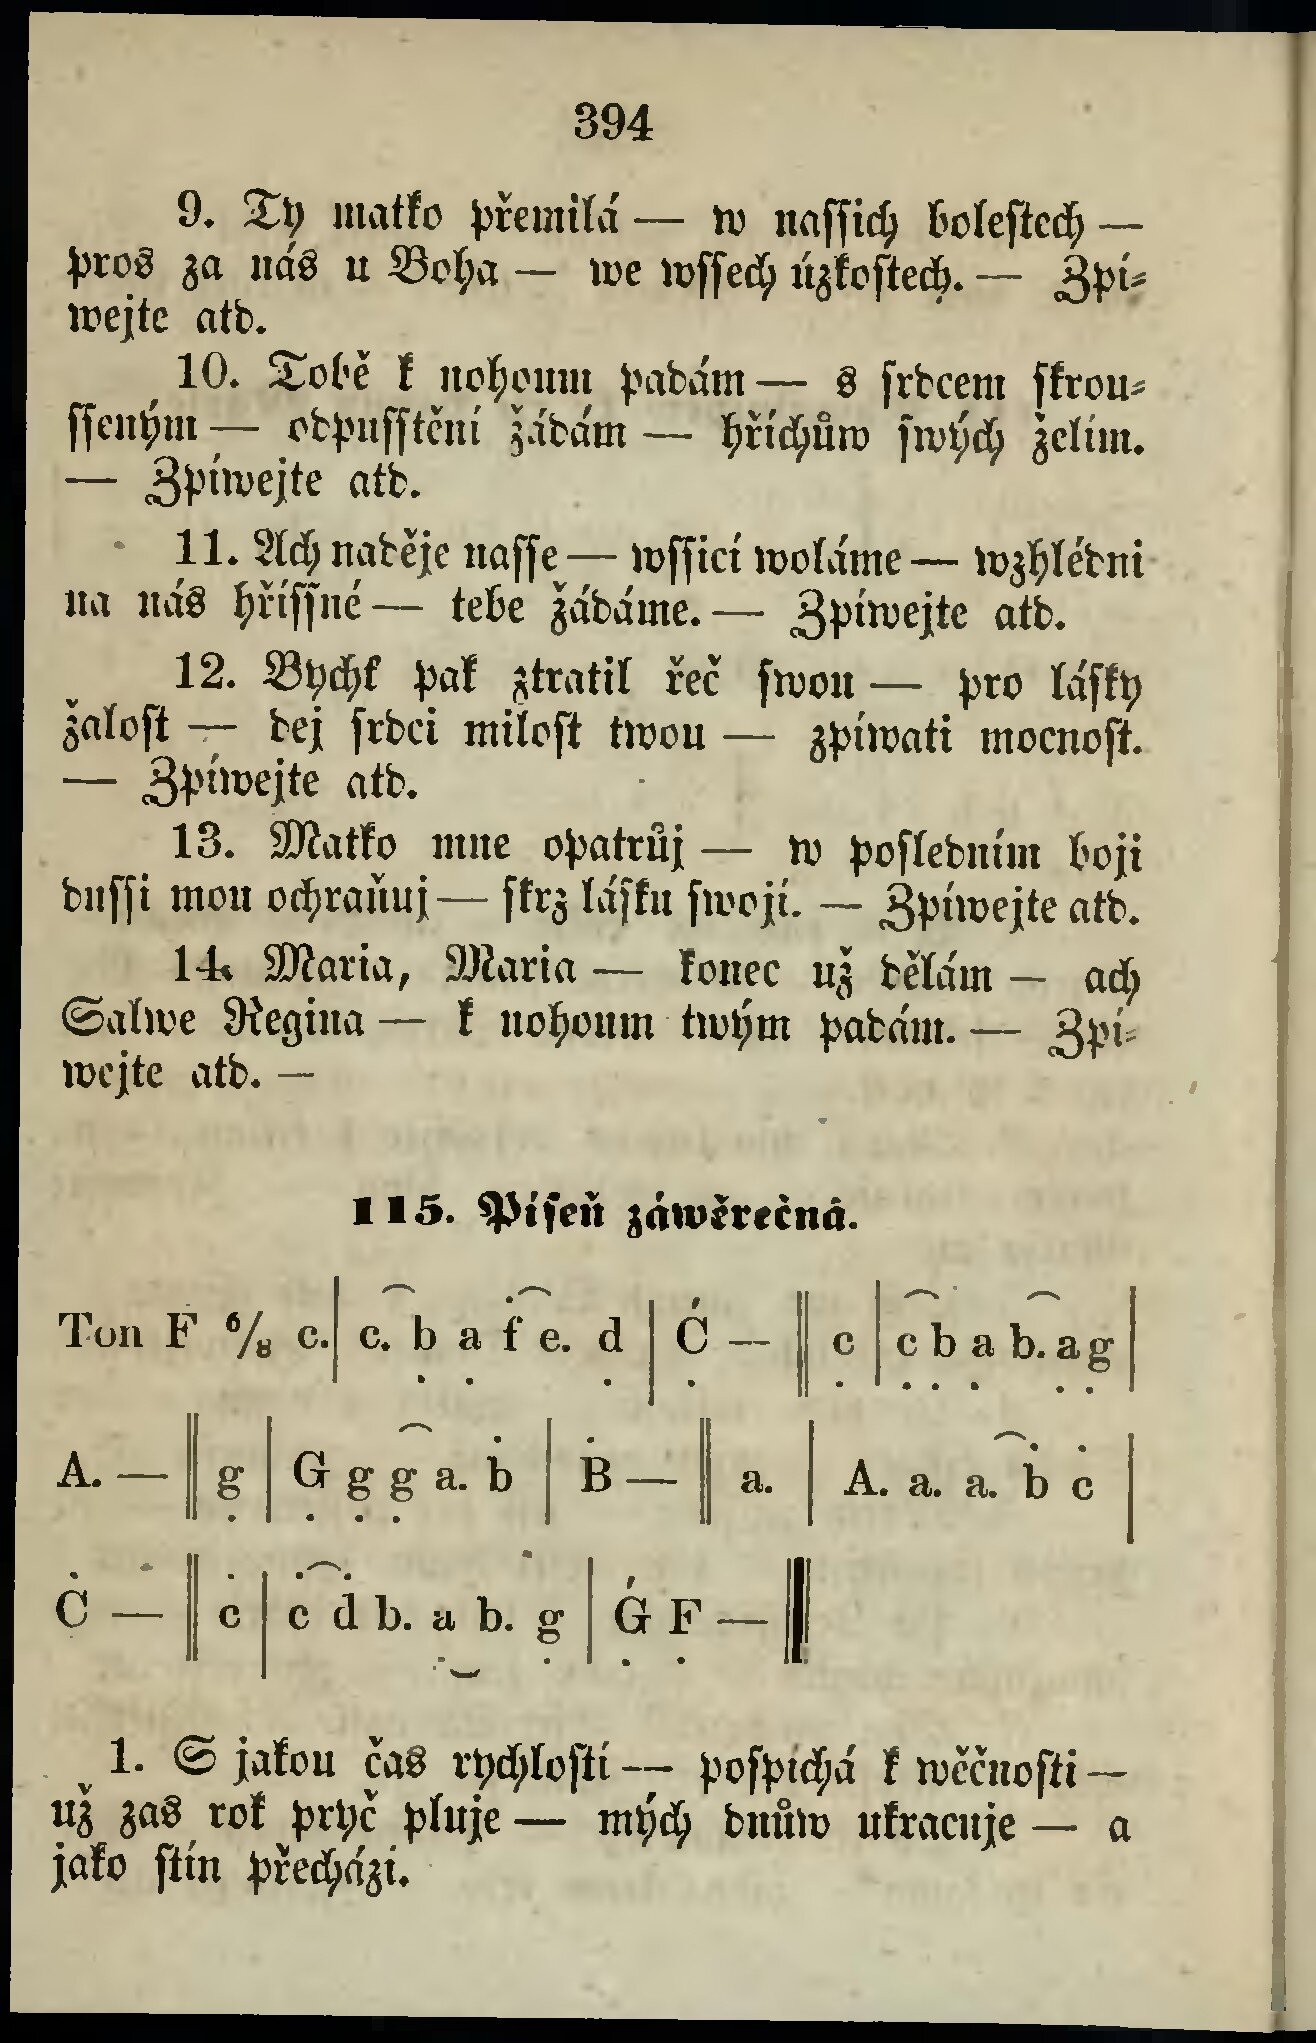 394
9. Ty matko přemilá — w naſſich boleſtech —
pros za nás u Boha — we wſſech úzkoſtech. — Zpí-
wejte atd.
10. Tobě k nohoum padám — s ſrdcem ſkrou-
ſſeným — odpuſſtění žádám — hříchům ſwých želím.
— Zpíwejte atd.
11. Ach naděje naſſe — wſſicí woláme — wzhlédni
na nás hříſſné — tebe žádáme. — Zpíwejte atd.
12. Bychk pak ztratil řeč ſwou — pro láſky
žaloſt — dej ſrdci miloſt twou — zpíwati mocnoſt.
— Zpíwejte atd.
13. Matko mne opatrůj — w poſledním boji
duſſi mou ochraňuj — ſkrz láſku ſwojí. — Zpíwejte atd.
14. Maria, Maria — konec už dělám — ach
Salwe Regina — k nohoum twým padám. — Zpí-
wejte atd. —
115. Píſeň záwěrečná.
Ton F 6/8 c. | c. b a f e. d | Ć — || c | c b a b. a g |
A. — || g | G g g a. ḃ | Ḃ — || a. | A. a. a. ḃ ċ |
Ċ — || ċ | ċ ḋ b. a b. g | Ǵ F — ||
1. S jakou čas rychloſtí — poſpíchá k wěčnoſti —
už zas rok pryč pluje — mých dnům ukracuje — a
jako ſtín přecházi.